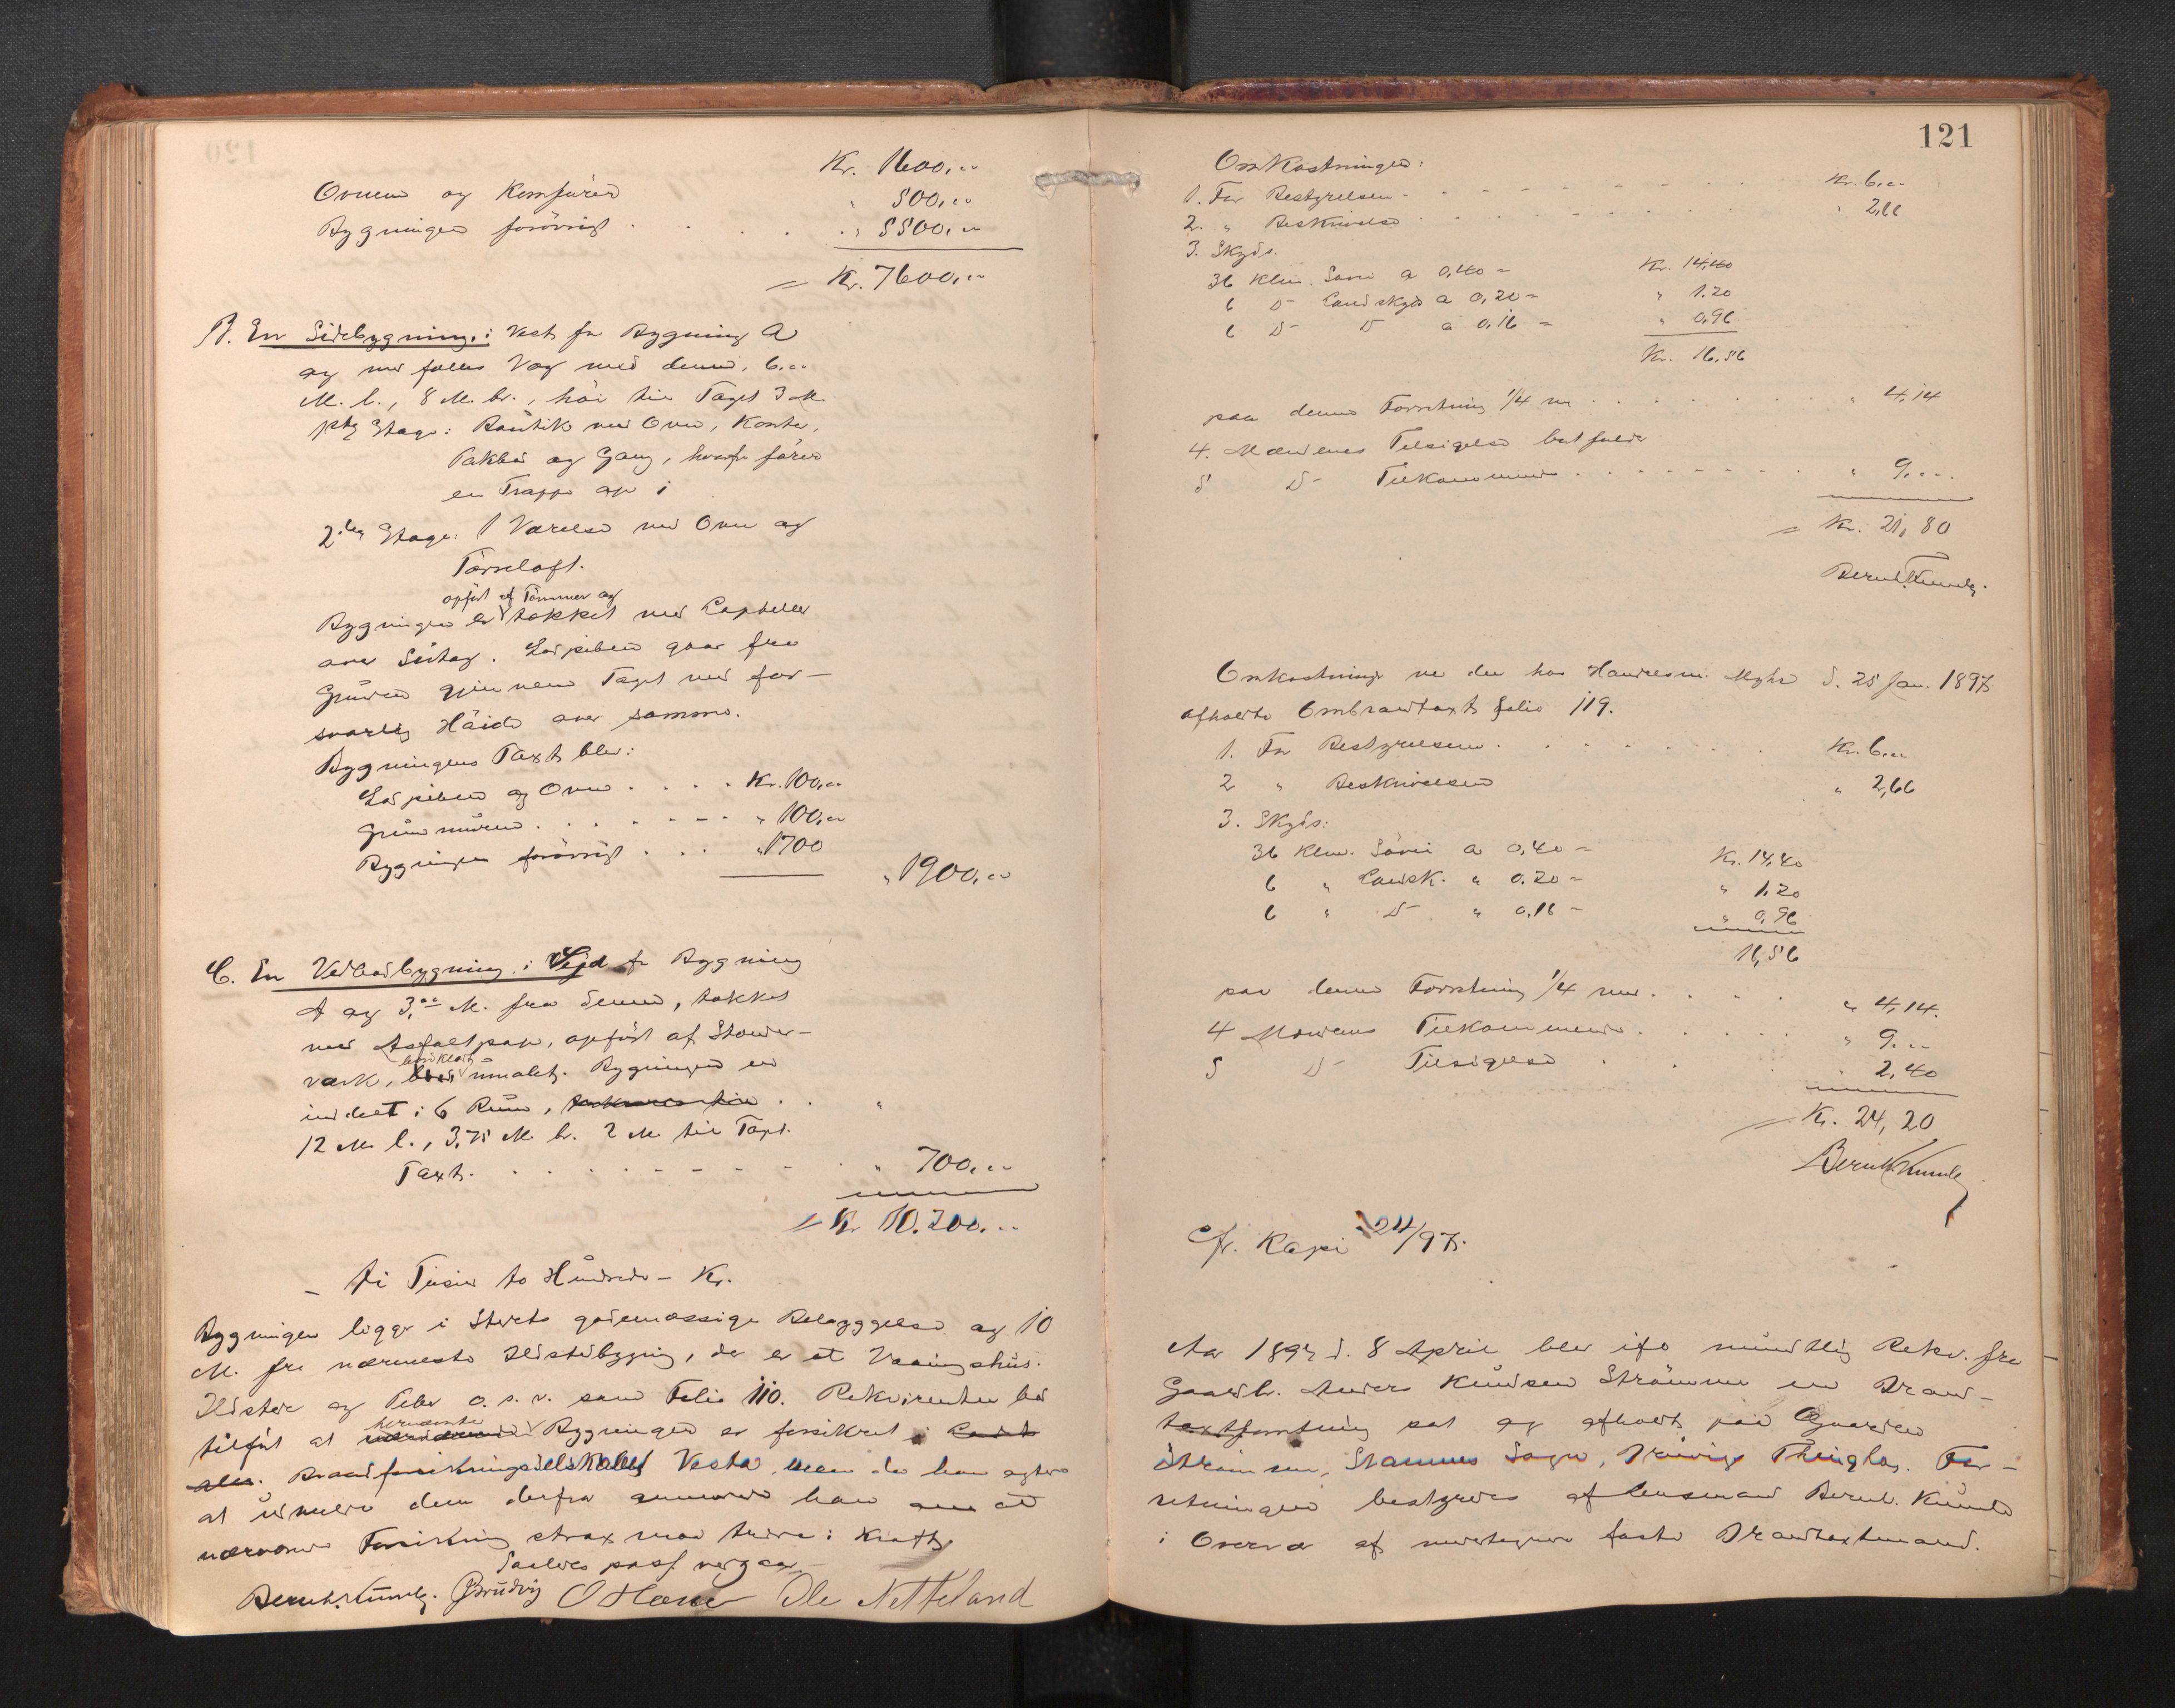 Kr. 1600,..
Ovnene og Komfuren " 500,..
Bygningen forövrigt . . . . . " 5500,..
= Kr. 7600,..
B. En Sidebygning, i Vest for Bygning A
og med fælles Væg med denne, 6,..
M. l., 8 M. br., höi til Taget 3 M.
1ste Etage: Boutik med Ovn, Kontor,
Pakbod og Gang, hvorfra fører
en Trappe op i
2den Etage: 1 Værelse med Ovn og
Törreloft.
opfört af Tömmer og
Bygningen er tækket med Lapheller
over Sutag. Ildpiben gaar fra
Grunden gjennem Taget med for-
svarlig Höide over samme.
Bygningens Taxt blev:
Ildpiben og Ovne . . . . Kr. 100,..
Grundmuren . . . . . . . " 100,..
Bygningen forövrigt . . . " 1700
" 1900,..
C. En Vedbodbygning, i Syd for Bygning
A og 3,.. M. fra denne, tækket
med Asfaltpap, opfört af Stender-
værk, bordklædt umalet. Bygningen er
inddelt i 6 Rum,
12 M. l., 3,75 M. br. 2 M. til Taget.
Taxt . . . . . . . . . " 700,..
= Kr 10.200,..
– ti Tusind to Hundrede – Kr.
Bygningen ligger i Steds godemæssige Belæggelse og 10
M. fra nærmeste Ildstedbygning, der er et Vaaningshus.
Ildsteder og Piber o. s. v. som Folio 110. Rekvirenten lod
tilføt at hernævnte Bygninger er forsikret i
Brandforsikringsselskabet Vesta, men da han agter
at udmelde dem derfra ønskede han at
nærværende Forsikring strax maa træde i Kraft.
Saaledes passeret vedgaaes
Bernh. Kunde. Brudvig O Hane Ole Netteland
121
Omkostninger:
1. For Bestyrelsen . . . . . . . . Kr. 6,..
2. " Beskrivelse . . . . . . . . " 2,66
3. Skyds.
36 Klm. Söveí a 0,40 = Kr. 14,40
6 D– Landskyds a 0,20 = " 1.20
6 D– D a 0,16 = " 0,96
Kr. 16,56
paa denne Forretning 1/4 m . . . . . . " 4,14
4. Mændenes Tilsigelse bortfalder
5 D– Tilkommende . . . . . . . " 9,..
= Kr. 21,80
Bernh. Kunde.
Omkostninger ved den hos Handelsm. Myhre d. 25 Jan. 1897
afholdte Ombrandtaxt folio 119.
1. For Bestyrelsen . . . . . . . Kr. 6,..
2 " Beskrivelsen " 2,66
3. Skyds:
36 Klm. Sövei a 0,40 = Kr. 14,40
6 " Landsk. " 0.20 = " 1.20
6 " D– " 0,16 = " 0,96
16,56
paa denne Forretning 1/4 med . . . . " 4,14.
4 Mændenes Tilkommende . . . . . " 9...
5 D– Tilsigelse . . " 2,40
= Kr. 24,20
Bernh. Kunde
Cfr. Kopi 24/97.
Aar 1897 d. 8 April blev ifø mundtlig Rekv. fra
Gaardbr. Anders Knudsen Strömme en Brand-
taxtforretning sat og afholdt paa Gaarden
Strömmen, Stamnes Sogn, Bruvig Thinglag. For-
retningen bestyredes af Lensmand Bernh. Kunde
i Overvær af undertegnede faste Brandtaxtmænd.